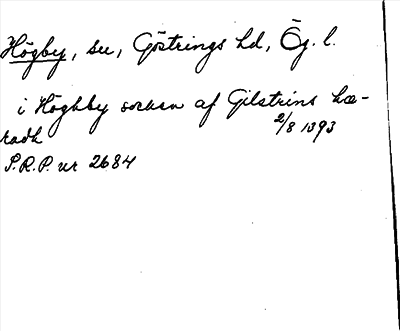 Högby, sn, Göstrings hd, Ög. l.
i Höghby sokun af Gilstrins hæ-
2/8 1393
radh
S.R.P. nr 2684